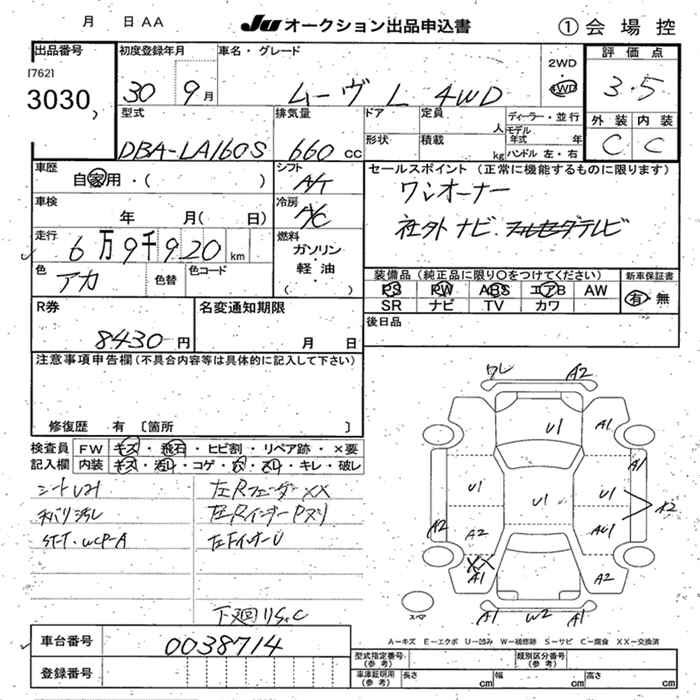 月 日 AA
JU オークション出品申込書
① 会場控
出品番号
17621
3030
初度登録年月
30 9月
車名・グレード
ムーヴ L 4WD
2WD
4WD
評価点
3.5
外装 内装
C C
型式
DBA-LA160S
排気量
660 cc
ドア
定員
人
形状
積載
kg
ディーラー・並行
モデル年式 年
ハンドル 左・右
車歴
自家用・( )
シフト
A/T
車検
年 月( 日)
冷房
A/C
走行
6万9千920 km
燃料
ガソリン・軽油
( )
色
アカ
色替
色コード
セールスポイント (正常に機能するものに限ります)
ワンオーナー
社外ナビ.フルセグテレビ
装備品 (純正品に限り○をつけてください)
PS PW ABS エアB AW
SR ナビ TV カワ
新車保証書
有・無
後日品
R券
8430円
名変通知期限
月 日
注意事項申告欄 (不具合内容等は具体的に記入して下さい)
修復歴 有 〔箇所 〕
検査員記入欄
FW キズ・飛石・ヒビ割・リペア跡・×要
内装 キズ・ヨゴレ・コゲ・穴・スレ・キレ・破レ
左Rフェンダー XX
左FインナーU
下廻りS.C
ワレ A2
U1 A1
A1
U1 U1 U1
A2
A2 A2 AU1
XX
A1 A2
スペア
A1 W2 A1
A-キズ E-エクボ U-凹み W-補修跡 S-サビ C-腐食 XX-交換済
車台番号
0038714
登録番号
型式指定番号 (参考)
類別区分番号 (参考)
車庫証明用 (参考)
長さ cm 幅 cm 高さ cm